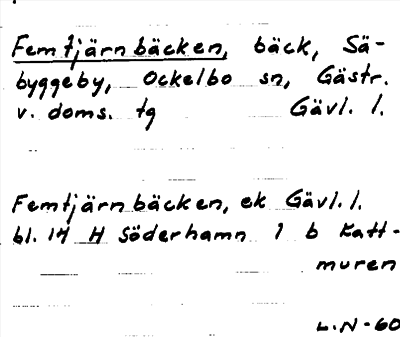 Femtjärnbäcken, bäck, Sä-
byggeby, Ockelbo sn, Gästr.
v. doms. tg Gävl. l.
Femtjärnbäcken, ek Gävl. l.
bl. 14 H Söderhamn 1 b Katt-
muren
L.N-60